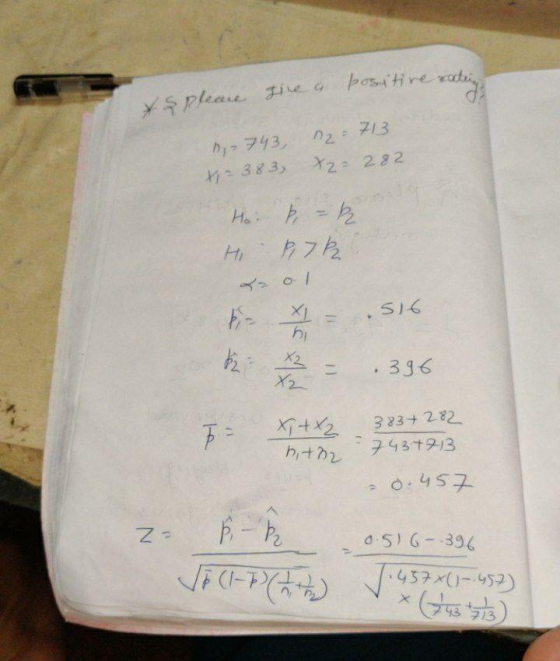 * & please give a positive rating;
n₁ = 743, n₂ = 713
x₁ = 383, x₂ = 282
H₀: p₁ = p₂
H₁: p₁ > p₂
α = 0.1
p̂₁ = x₁/n₁ = .516
p̂₂ = x₂/x₂ = .396
p̄ = (x₁+x₂)/(n₁+n₂) = (383+282)/(743+713)
= 0.457
Z = (p̂₁ - p̂₂)/√(p̄(1-p̄)(1/n₁+1/n₂)) = (0.516-.396)/√(.457×(1-.457)
×(1/743+1/713))